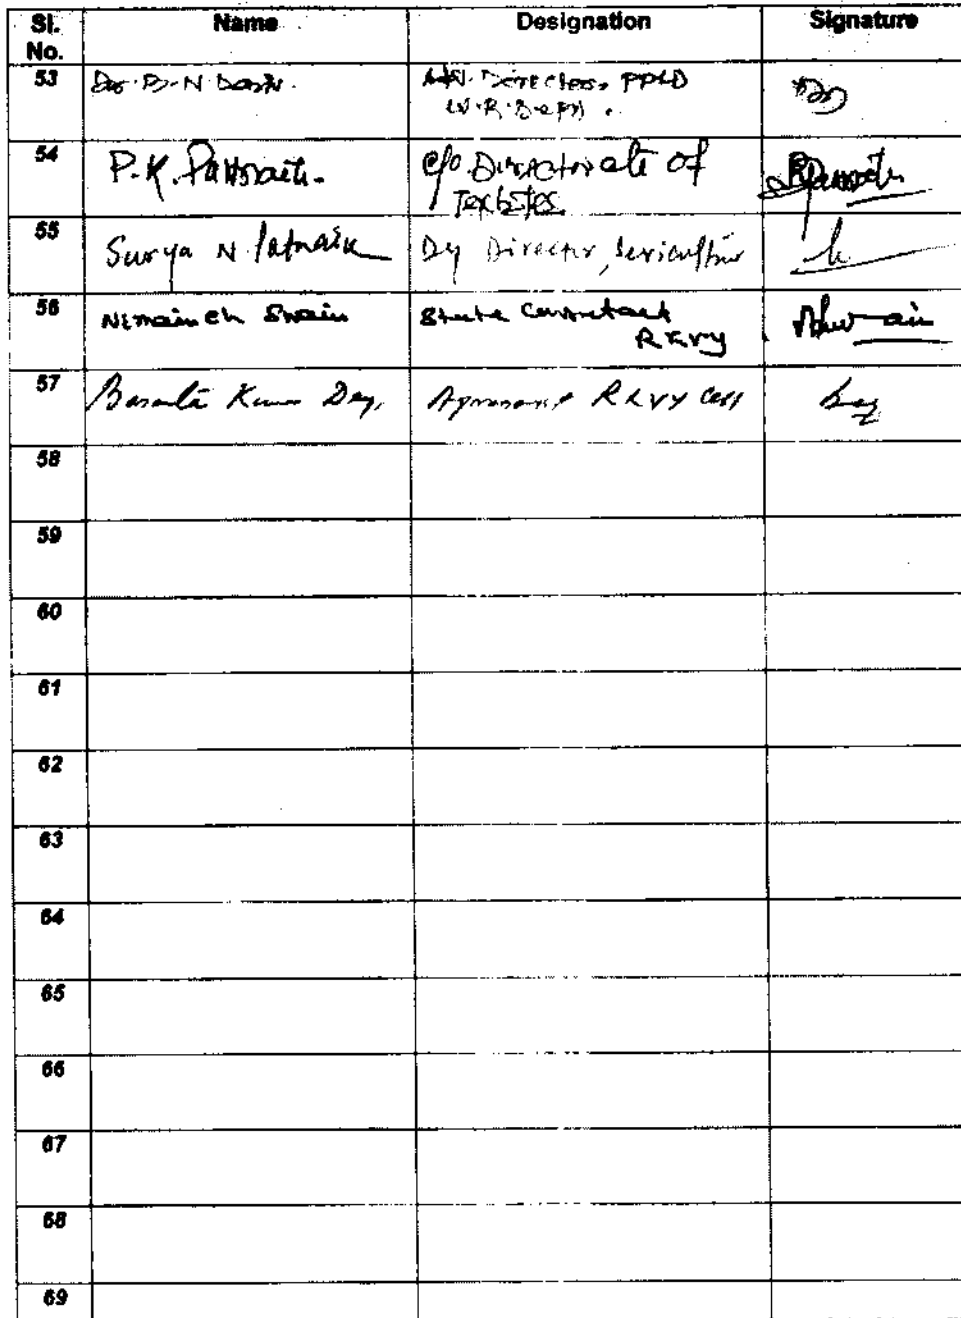 Sl. No. Name Designation Signature
53 Dr. B. N. Dash. Director, PPLD
54 P. K. Pattnaik. C/o Directorate of
Textiles
55 Surya N. Patnaik Dy Director, Sericulture
56 Nimain Ch Swain State Consultant
RKVY
57 Basanta Kumar Dey, RKVY Cell
58
59
60
61
62
63
64
65
66
67
68
69